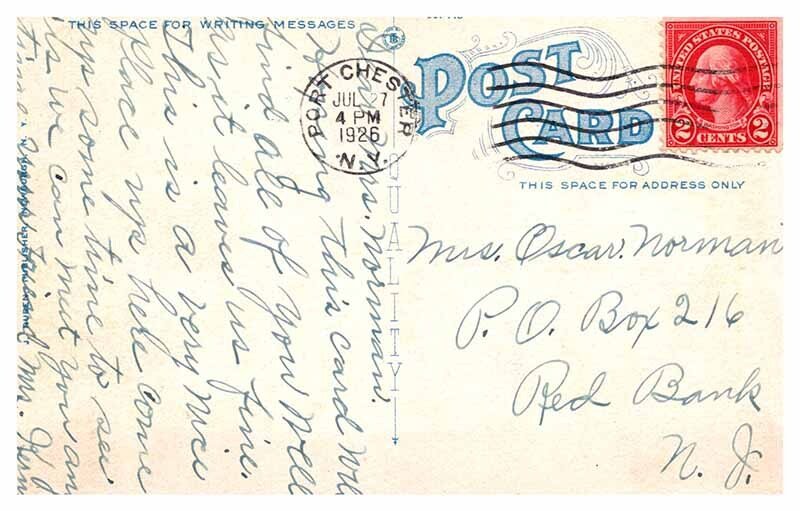 THIS SPACE FOR WRITING MESSAGES
POST
CARD
THIS SPACE FOR ADDRESS ONLY
UNITED STATES POSTAGE
2 CENTS 2
PORT CHESTER
JUL 27
4 PM
1926
N.Y.
QUALITY
Mrs. Norman.
this card will
find all of you well
as it leaves us fine.
This is a very nice
place up here come
up some time to see
us we can meet you an
time
Mrs.
Mrs. Oscar. Norman
P. O. Box 216
Red Bank
N. J.